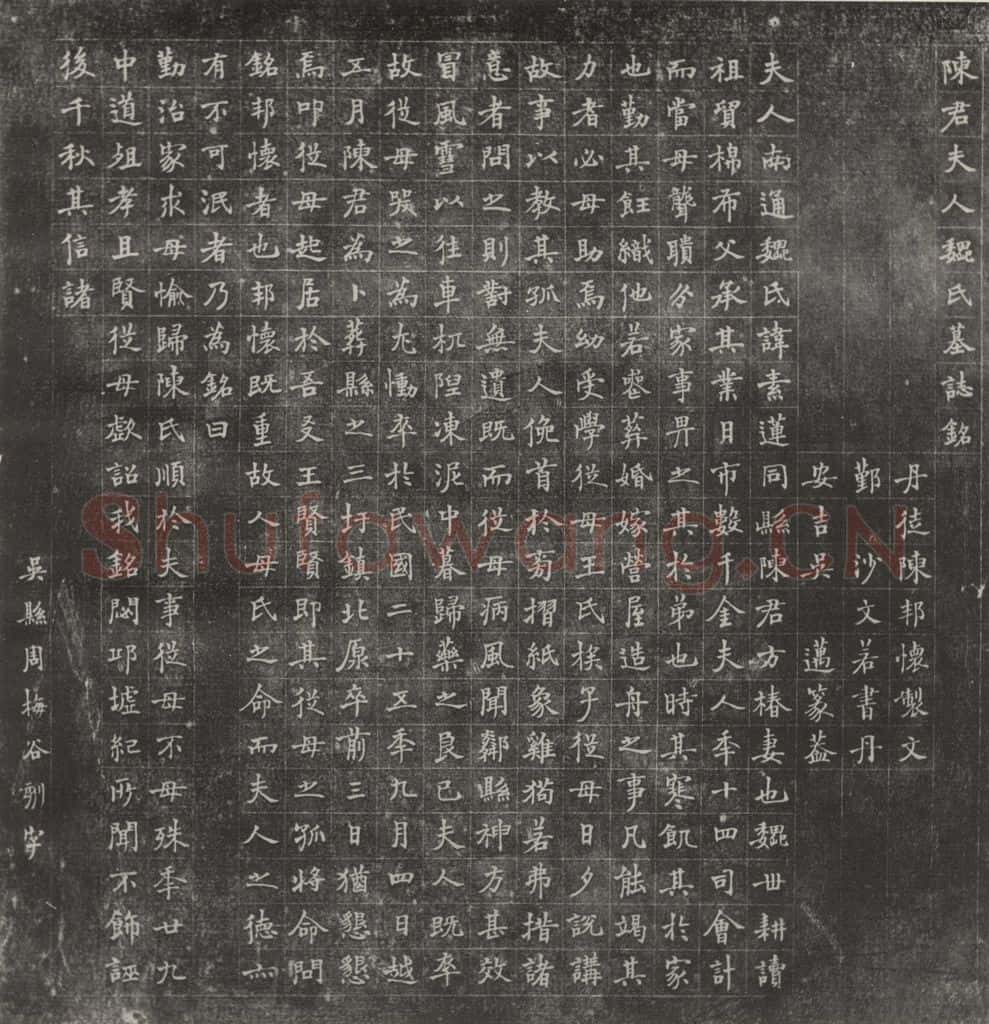 陳君夫人魏氏墓誌銘
丹徒陳邦懷製文
鄞沙文若書丹
安吉吳邁篆葢
夫人南通魏氏諱素蓮同縣陳君方椿妻也魏世耕讀
祖貿棉布父承其業日市數千金夫人年十四司會計
而當母聾聵分家事畀之其於弟也時其寒飢其於家
也勤其飪織他若塟葬婚嫁營屋造舟之事凡能竭其
力者必母助焉幼受學從母王氏挨子從母日夕說講
故事以教其孤夫人俛首於旁摺紙象雞狗若弗措諸
意者問之則對無遺既而從母病風聞鄰縣神方甚效
冒風雪以往車杌隉凍泥中暮歸藥之良已夫人既卒
故從母哭之為尤慟卒於民國二十五年九月四日越
五月陳君為卜葬縣之三圩鎮北原卒前三日猶懇懇
焉叩從母起居於吾友王賢賢即其從母之孤將命問
銘邦懷者也邦懷既重故人母氏之命而夫人之德亦
有不可泯者乃為銘曰
勤治家求母愉歸陳氏順於夫事從母不母殊年廿九
中道殂孝且賢從母歔詔我銘閟邛墟紀所聞不飾誣
後千秋其信諸
吳縣周梅谷刻字
Shufawang.CN